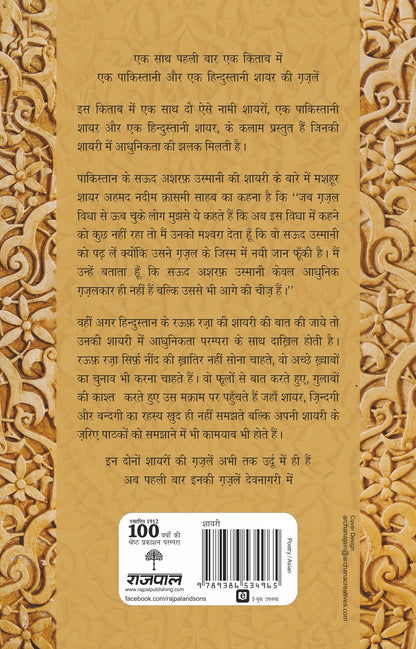 एक साथ पहली बार एक किताब में
एक पाकिस्तानी और एक हिन्दुस्तानी शायर की ग़ज़लें
इस किताब में एक साथ दो ऐसे नामी शायरों, एक पाकिस्तानी
शायर और एक हिन्दुस्तानी शायर, के कलाम प्रस्तुत हैं जिनकी
शायरी में आधुनिकता की झलक मिलती है।
पाकिस्तान के सऊद अशरफ़ उस्मानी की शायरी के बारे में मशहूर
शायर अहमद नदीम क़ासमी साहब का कहना है कि “जब ग़ज़ल
विधा से ऊब चुके लोग मुझसे ये कहते हैं कि अब इस विधा में कहने
को कुछ नहीं रहा तो मैं उनको मश्वरा देता हूँ कि वो सऊद उस्मानी
को पढ़ लें क्योंकि उसने ग़ज़ल के जिस्म में नयी जान फूँकी है। मैं
उन्हें बताता हूँ कि सऊद अशरफ़ उस्मानी केवल आधुनिक
ग़ज़लकार ही नहीं हैं बल्कि उससे भी आगे की चीज़ हैं।”
वहीं अगर हिन्दुस्तान के रऊफ़ रज़ा की शायरी की बात की जाये तो
उनकी शायरी में आधुनिकता परम्परा के साथ दाख़िल होती है।
रऊफ़ रज़ा सिर्फ़ नींद की ख़ातिर नहीं सोना चाहते, वो अच्छे ख़्वाबों
का चुनाव भी करना चाहते हैं। वो फूलों से बात करते हुए, गुलाबों
की काश्त करते हुए उस मक़ाम पर पहुँचते हैं जहाँ शायर, ज़िन्दगी
और बन्दगी का रहस्य खुद ही नहीं समझते बल्कि अपनी शायरी के
ज़रिए पाठकों को समझाने में भी कामयाब भी होते हैं।
इन दोनों शायरों की ग़ज़लें अभी तक उर्दू में ही हैं
अब पहली बार इनकी ग़ज़लें देवनागरी में
स्थापित 1912
100 वर्षों की
श्रेष्ठ प्रकाशन परम्परा
राजपाल
www.rajpalpublishing.com
facebook.com/rajpalandsons
शायरी
9 789386 534965
ई-बुक उपलब्ध
Poetry / Asian
Cover Design
archanajain@archanacreatives.com